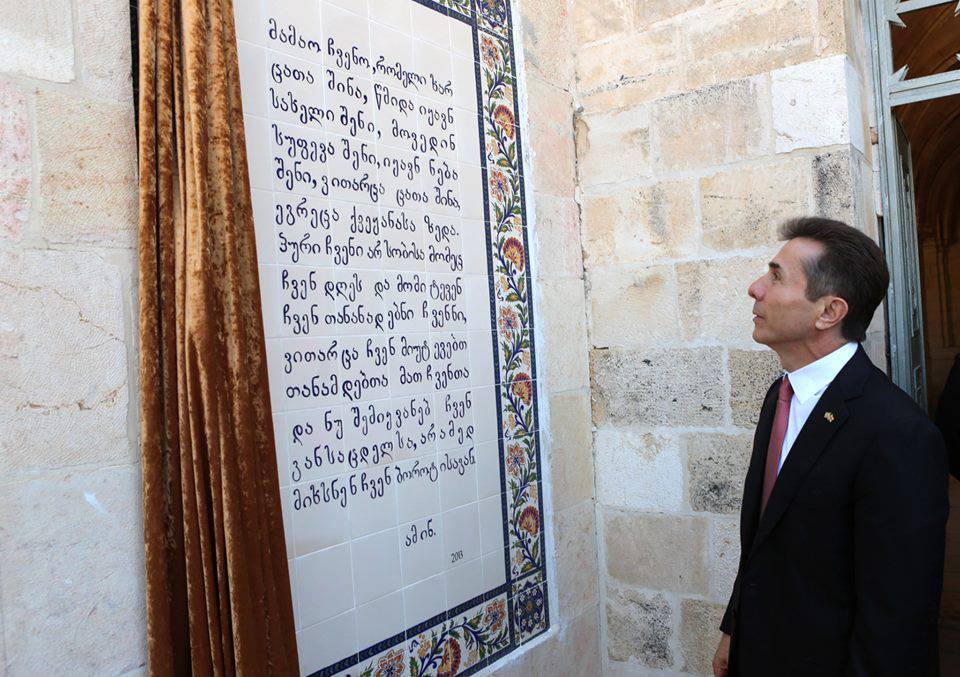 მამაო ჩვენო, რომელი ხარ
ცათა შინა, წმიდა იყავნ
სახელი შენი, მოვედინ
სუფევა შენი, იყავნ ნება
შენი, ვითარცა ცათა შინა,
ეგრეცა ქვეყანასა ზედა.
პური ჩვენი არსობისა მომეც
ჩვენ დღეს და მომიტევენ
ჩვენ თანანადებნი ჩვენნი,
ვითარცა ჩვენ მიუტევებთ
თანამდებთა მათ ჩვენთა
და ნუ შემიყვანებ ჩვენ
განსაცდელსა, არამედ
მიხსნენ ჩვენ ბოროტისაგან.
ამინ.
2013